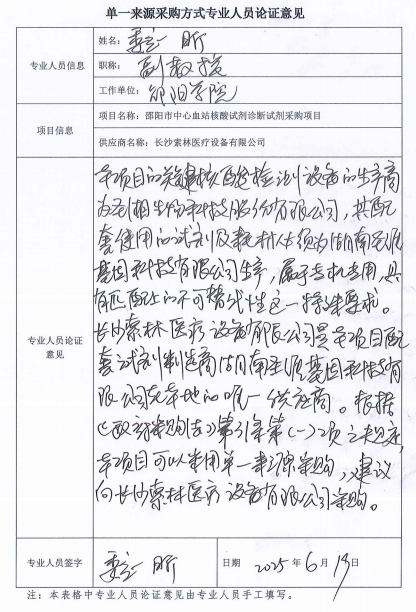 单一来源采购方式专业人员论证意见
专业人员信息
姓名： 昕
职称：副教授
工作单位：邵阳学院
项目信息
项目名称：邵阳市中心血站核酸试剂诊断试剂采购项目
供应商名称：长沙索林医疗设备有限公司
专业人员论证
意见
本项目的关键核酸检测设备的生产商
为 科技股份有限公司，其配
套使用的试剂及耗材必须为湖南圣湘
基因科技有限公司生产，属于专机专用，具
有匹配上的不可替代性这一特殊要求。
长沙索林医疗设备有限公司是本项目配
套试剂制造商湖南圣湘基因科技有
限公司在本地的唯一供应商。根据
《政府采购法》第31条第（一）项之规定，
本项目可以采用单一来源采购，建议
向长沙索林医疗设备有限公司采购。
专业人员签字
昕
日期 2025年6月19日
注：本表格中专业人员论证意见由专业人员手工填写。